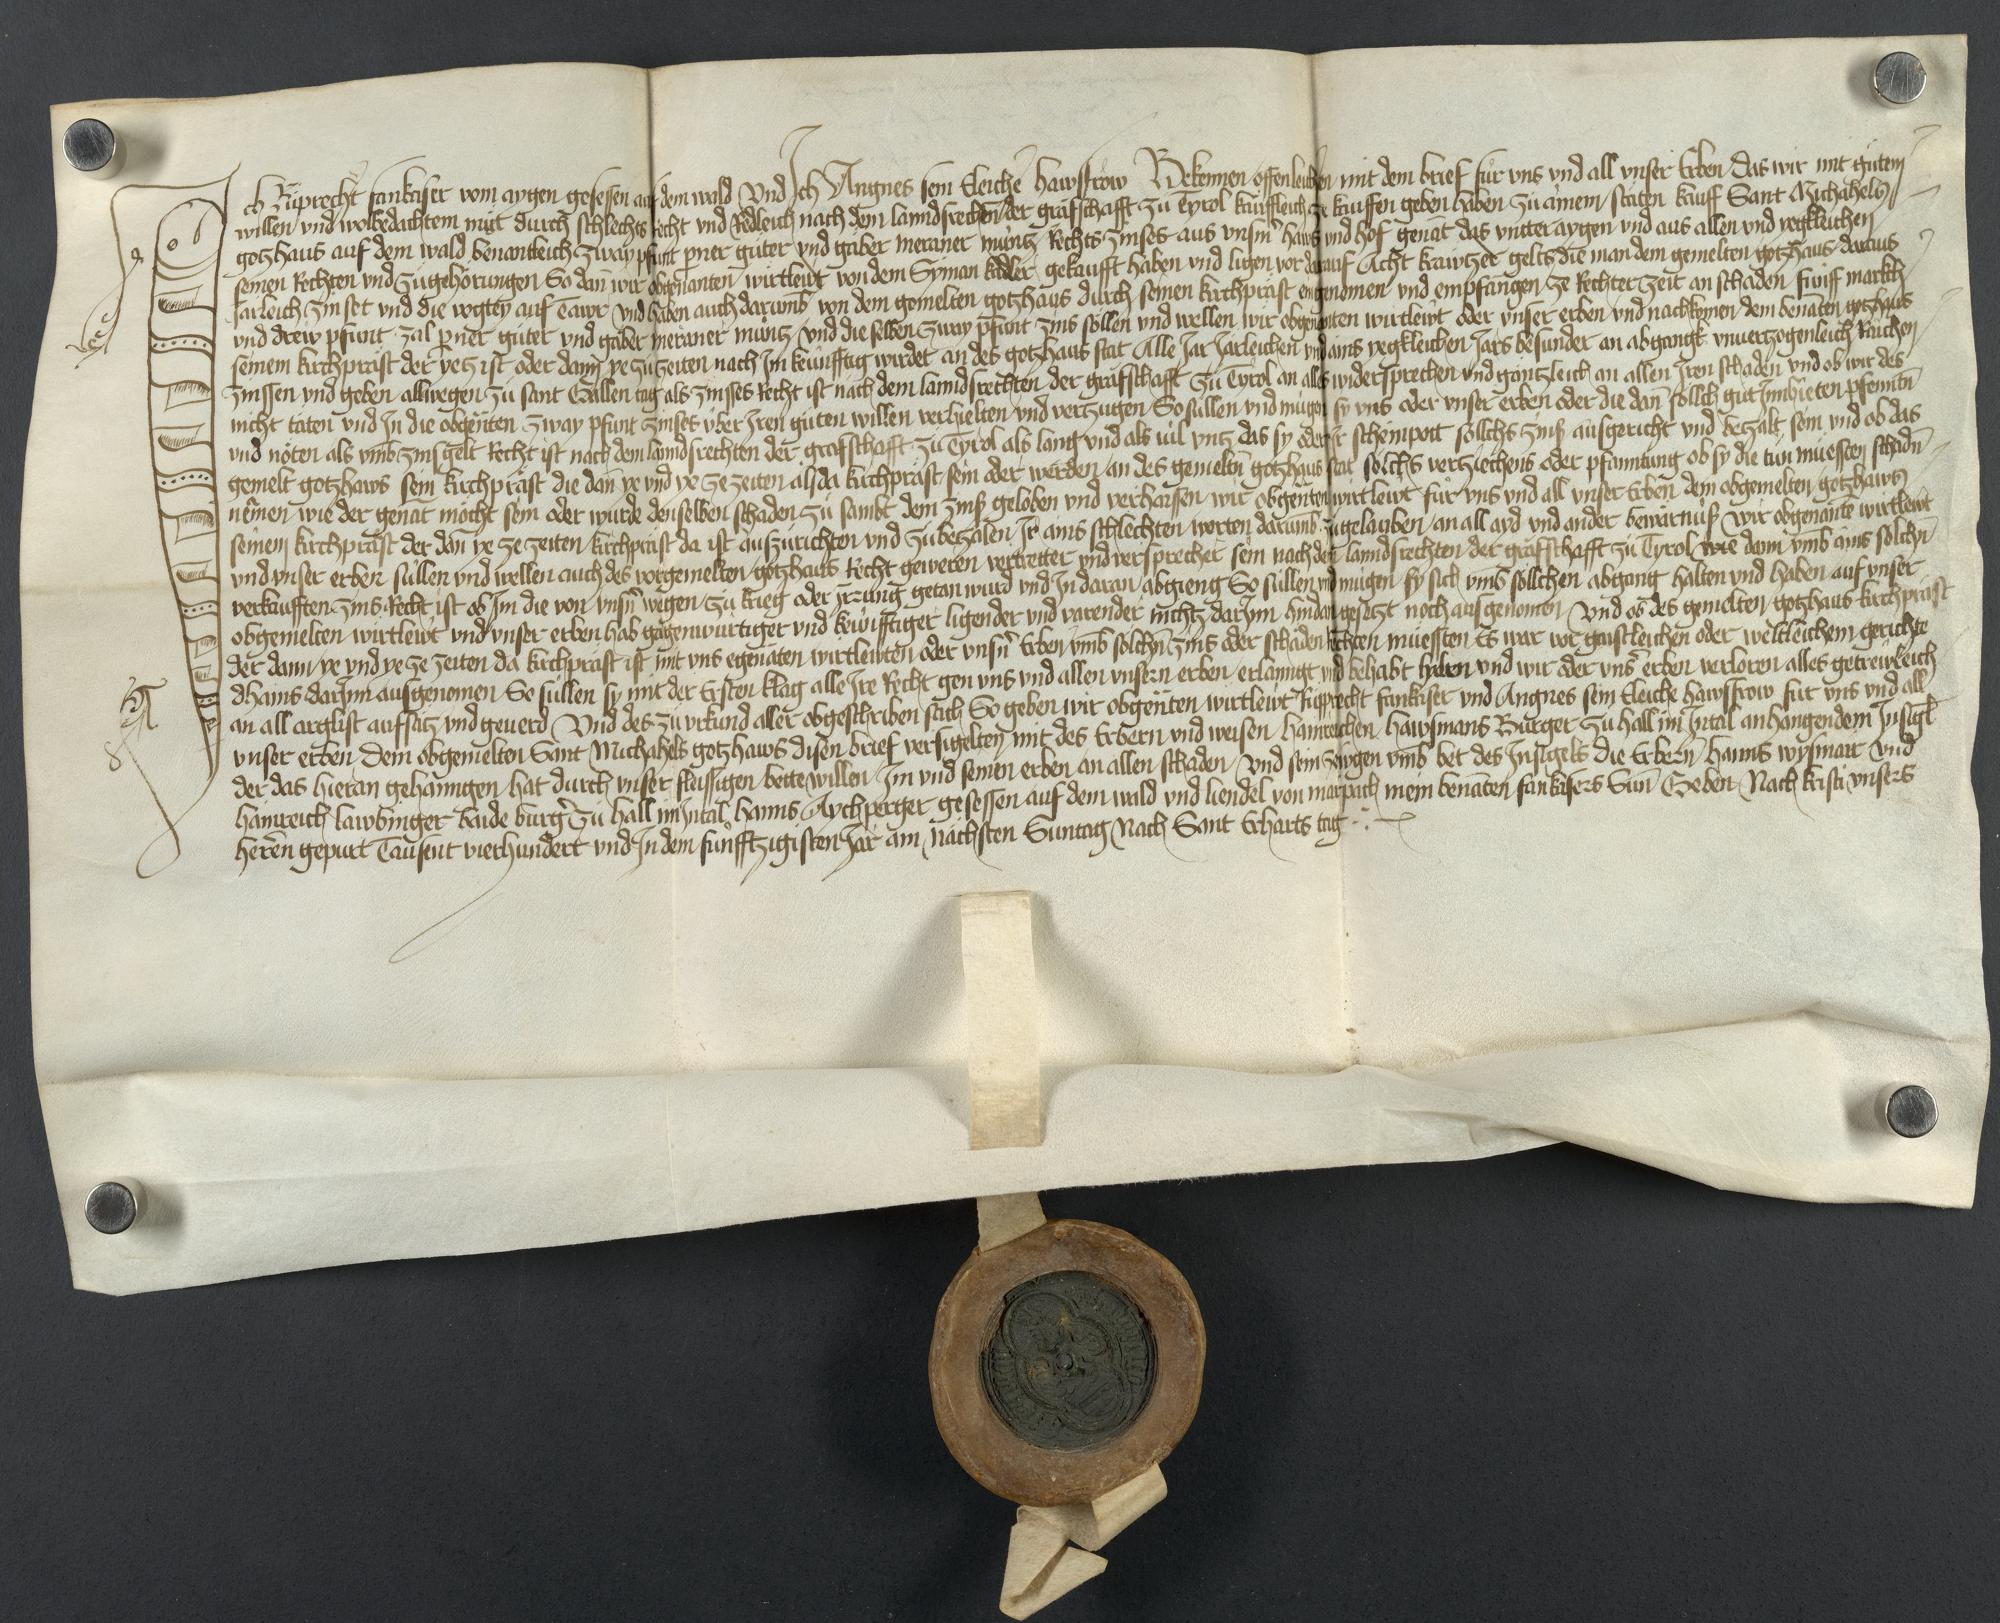 Ich Rüprecht fankaser vom aygen gesessen auf dem wald Und Ich Angnes sein Eleiche hawsfrow Bekennen offenleichen mit dem brief für vns vnd all vnser Erben Das wir mit gütem
willen vnd wolbedachtem müt durch schlechts Recht vnd Redleich nach dem lanndsrechten der grafschafft zu Tyrol kaufleich ze kauffen geben haben zu ainem stäten kauff Sant Michahels
gotzhaus auf dem wald benantleich zway pfunt pner güter vnd gäber meraner münz Rechts zinses aus vnserm haws vnd hof genāt das vntter aygen vnd aus allen vnd yegkleichen
seinen Rechten vnd zugehörungen So dan wir obgenanten wirtlewt von dem Syman kufler gekaufft haben vnd ligen vor darauf Acht krawtzer gelts die man dem gemelten gotzhaus daraus
Järleich zinset vnd die vogtey auf Tawr vnd haben auch darumb von dem gemelten gotzhaus durch seinen kirchpräst eingenomen vnd empfangen ze Rechter zeit an schaden fünff markh
vnd drew pfunt zal pner güter vnd gäber meraner münz vnd die selben zway pfunt zins söllen vnd wellen wir obgenanten wirtlewt oder vnser erben vnd nachkomen dem benāten gotzhaus
seinem kirchpräst der yetz ist oder dann ye zu zeiten nach Im keunfftig wirdet an des gotzhaus stat Alle Jar Järleichen vnd ains yegkleichen Jars besunder an abgangk vnuerzogenleich Raichen
zinssen vnd geben allwegen zu sant Gallen tag als zinsses Recht ist nach dem lanndsrechten der grafschafft zu Tyrol an alles widersprechen vnd gäntzleich an allen Iren schaden vnd ob wir des
nicht täten vnd In die obgenten zway pfunt zinses über Iren güten willen verhielten vnd verzugen So süllen vnd mügen sy vns oder vnser erben oder die dan sollch güt Innhieten pfenntn
vnd nöten als vmb zinsgelt Recht ist nach dem lanndsrechten der grafschafft zu Tyrol als lang vnd als uil vntz das sy oder Ir scheinpott söllchs zins ausgericht vnd bezalt sein vnd ob das
gemelt gotzhaws sein kirchpräst die dan ye vnd ye ze zeiten alsda kirchpräst sein oder werden an des gemeltn gotzhaus stat sölchs verziechens oder pfanntung ob sy die tün müessten schadn
nemen wie der genāt möcht sein oder würde denselben schaden zu sambt dem zins geloben vnd verhaissen wir obgenten wirtlewt für vns vnd all vnser Erben dem obgemelten gotzhaws
seinem kirchpräst der dan ye ze zeiten kirchpräst da ist auszurichten vnd zubezalen Ir ains schlechten worten darumb zugelauben an all ayd vnd ander bewärnüs wir obgenante wirtlewt
vnd vnser erben süllen vnd wellen auch des vorgemelten gotzhaus Recht geweren vertretter vnd versprecher sein nach der lanndsrechten der grafschafft zu Tyrol wie dann vmb ains sölchn
verkaufften zins Recht ist ob Im die von vnsern wegen zu krieg oder yrrung getan wurd vnd In daran abgieng So süllen vnd mugen sy sich vmb söllchen abgang halten vnd haben auf vnser
obgemelten wirtlewt vnd vnser erben hab gagenwürtiger vnd kewnfftiger ligender vnd varender nichtz darInn hindangesetzt noch ausgenomen Vnd ob des gemelten gotzhaus kirchpräst
der dann ye vnd ye ze zeiten da kirchpräst ist mit vns egenāten wirtlewten oder vnsern Erben vmb sölchn zins oder schaden Rechten müessten Es wär vor gaistleichen oder weltleichem gerichte
dhains darInn ausgenomen So süllen sy mit der Ersten klag alle Ire Recht gen vns vnd allen vnsern erben erlanngt vnd behabt haben vnd wir oder vnser erben verloren alles getrewleich
an all arglist aufsatz vnd geuerd Vnd des zu vrkund aller obgeschriben sach So geben wir obgenten wirtlewt Rupprecht fankaser vnd Angnes sein Eleiche hawsfrow für vns vnd all
vnser erben Dem obgemelten Sant Michahels gotzhaws disen brief versigelten mit des Erbern vnd weisen Hainreichen hawsmans Burger zu hall im Intal anhangendem Insigl
der das hieran gehanngen hat durch vnser fleissigen bette willen Im vnd seinen erben an allen schaden Vnd sein zewgen vmb bet des Insigels die Erbern Hanns wysmair Vnd
hainreich lawbinger baide burger zu hall im Intal hanns Aychperger gesessen auf dem wald vnd liendel von marpach mein benāten fankasers Sun Geben Nach kristi vnsers
heren gepurt Tausent vierhundert vnd In dem fünfftzigisten Jar am Nächsten Suntag Nach Sant Erharts tag